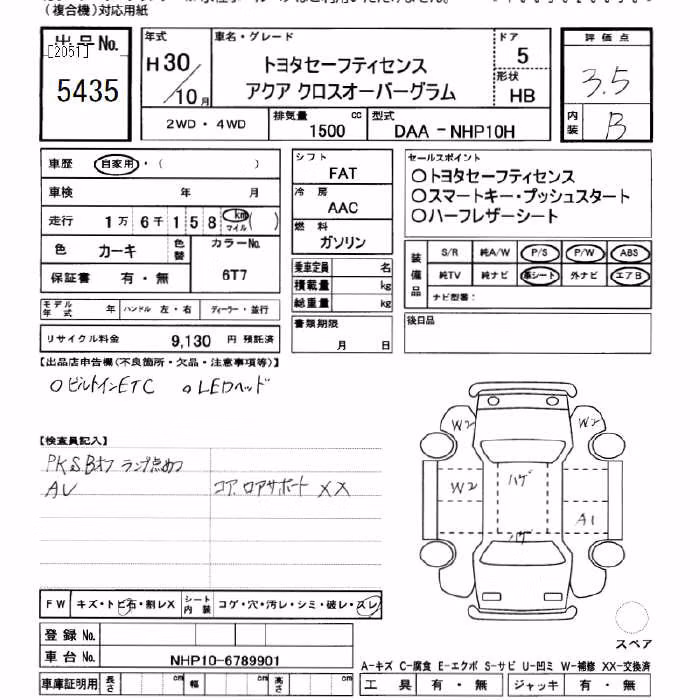 (複合機)対応用紙
出品No.
[2051]
5435
年式
H30/10月
車名・グレード
トヨタセーフティセンス
アクア クロスオーバーグラム
ドア
5
形状
HB
評価点
3.5
内装
B
2WD・4WD
排気量
1500 cc
型式
DAA-NHP10H
車歴 自家用・( )
車検 年 月
走行 1万6千158 km マイル ( )
色 カーキ 色替 カラーNo.
6T7
保証書 有・無
モデル年式 年 ハンドル 左・右 ディーラー・並行
リサイクル料金 9,130 円 預託済
シフト
FAT
冷房
AAC
燃料
ガソリン
乗車定員 名
積載量 kg
総重量 kg
書類期限
月 日
セールスポイント
○トヨタセーフティセンス
○スマートキー・プッシュスタート
○ハーフレザーシート
装備品
S/R 純A/W P/S P/W ABS
純TV 純ナビ 革シート 外ナビ エアB
ナビ型番:
後日品
【出品店申告欄(不良箇所・欠品・注意事項等)】
○ビルトインETC ○LEDヘッド
【検査員記入】
PKSBオフ ランプ点めつ
AU コア.ロアサポート XX
W2 W2
W2 ハゲ
A1
ハゲ
FW キズ・トビ石・割レX シート内装 コゲ・穴・汚レ・シミ・破レ・スレ
登録No.
車台No. NHP10-6789901
車庫証明用 長さ cm 幅 cm 高さ cm
スペア
A-キズ C-腐食 E-エクボ S-サビ U-凹ミ W-補修 XX-交換済
工具 有・無 ジャッキ 有・無